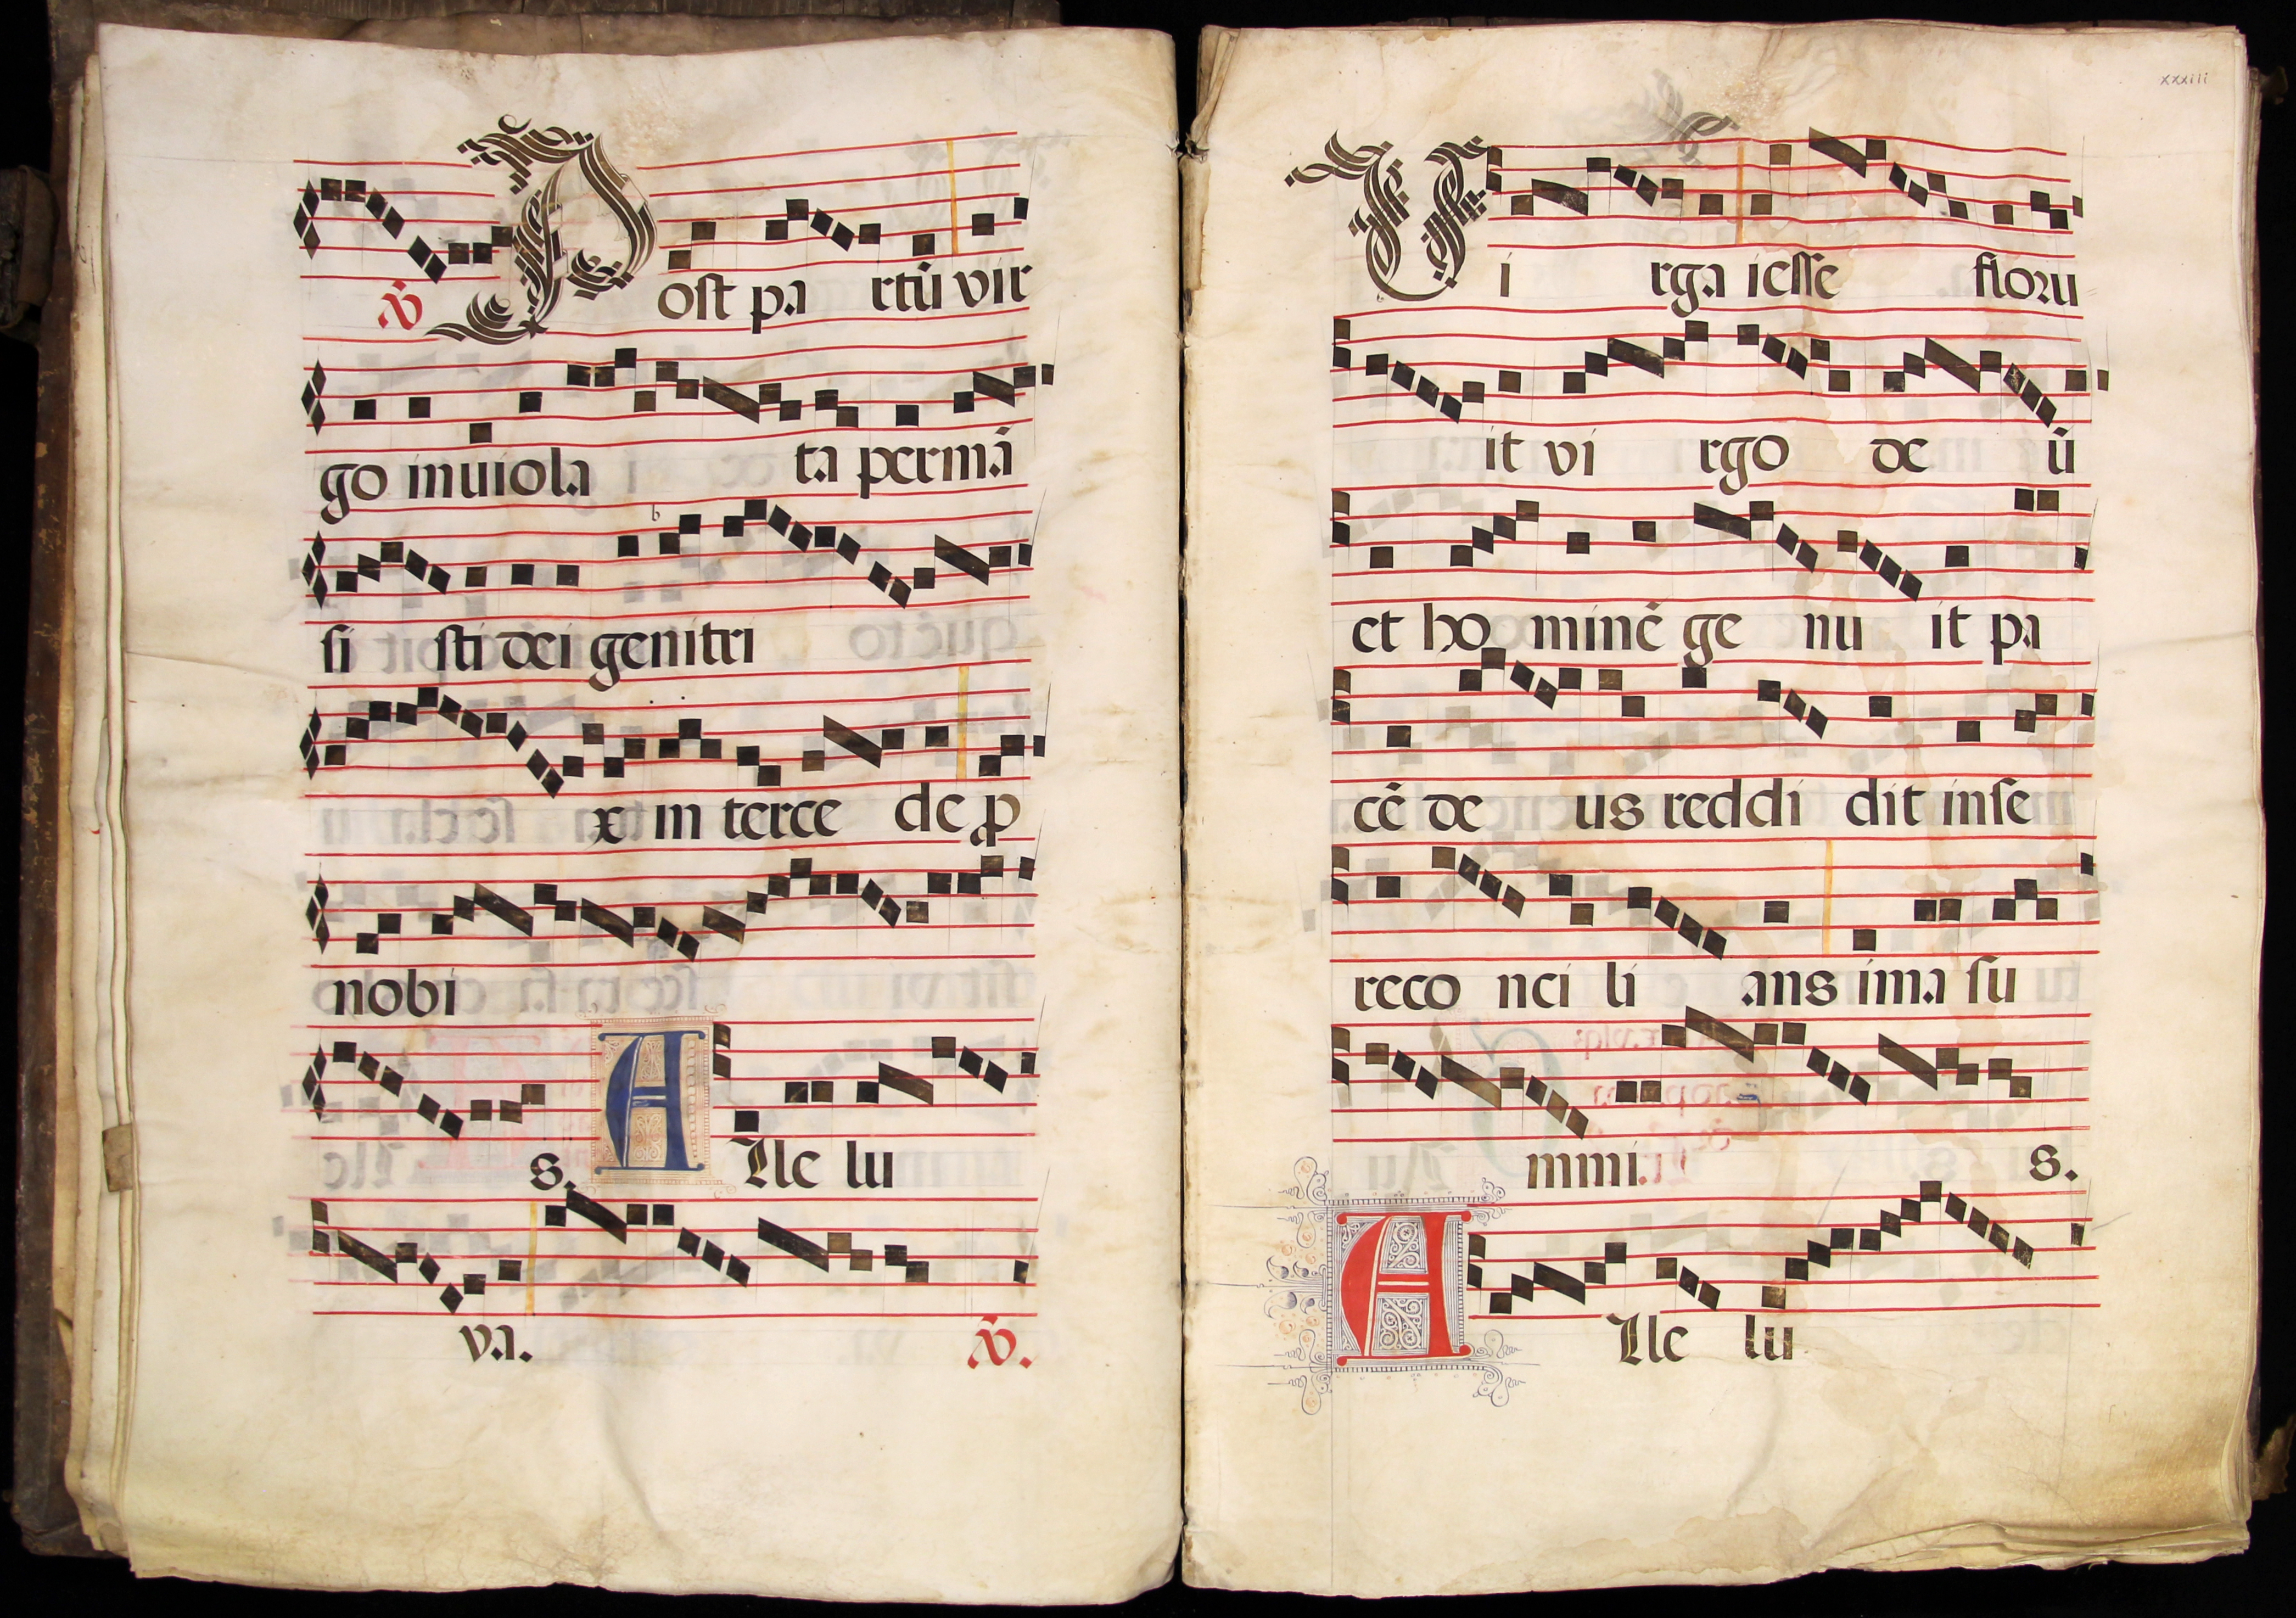 ℣
Post pa rtū vir
go inuiola ta permā
si sti dei genitri
x in terce de ꝓ
nobi
s. Alle lu
va. ℣.
xxxiii
Vi rga iesse floru
it vi rgo de ū
et ho minē ge nu it pa
cē de us reddi dit inse
reco nci li ans ima su
mmi. s.
Alle lu